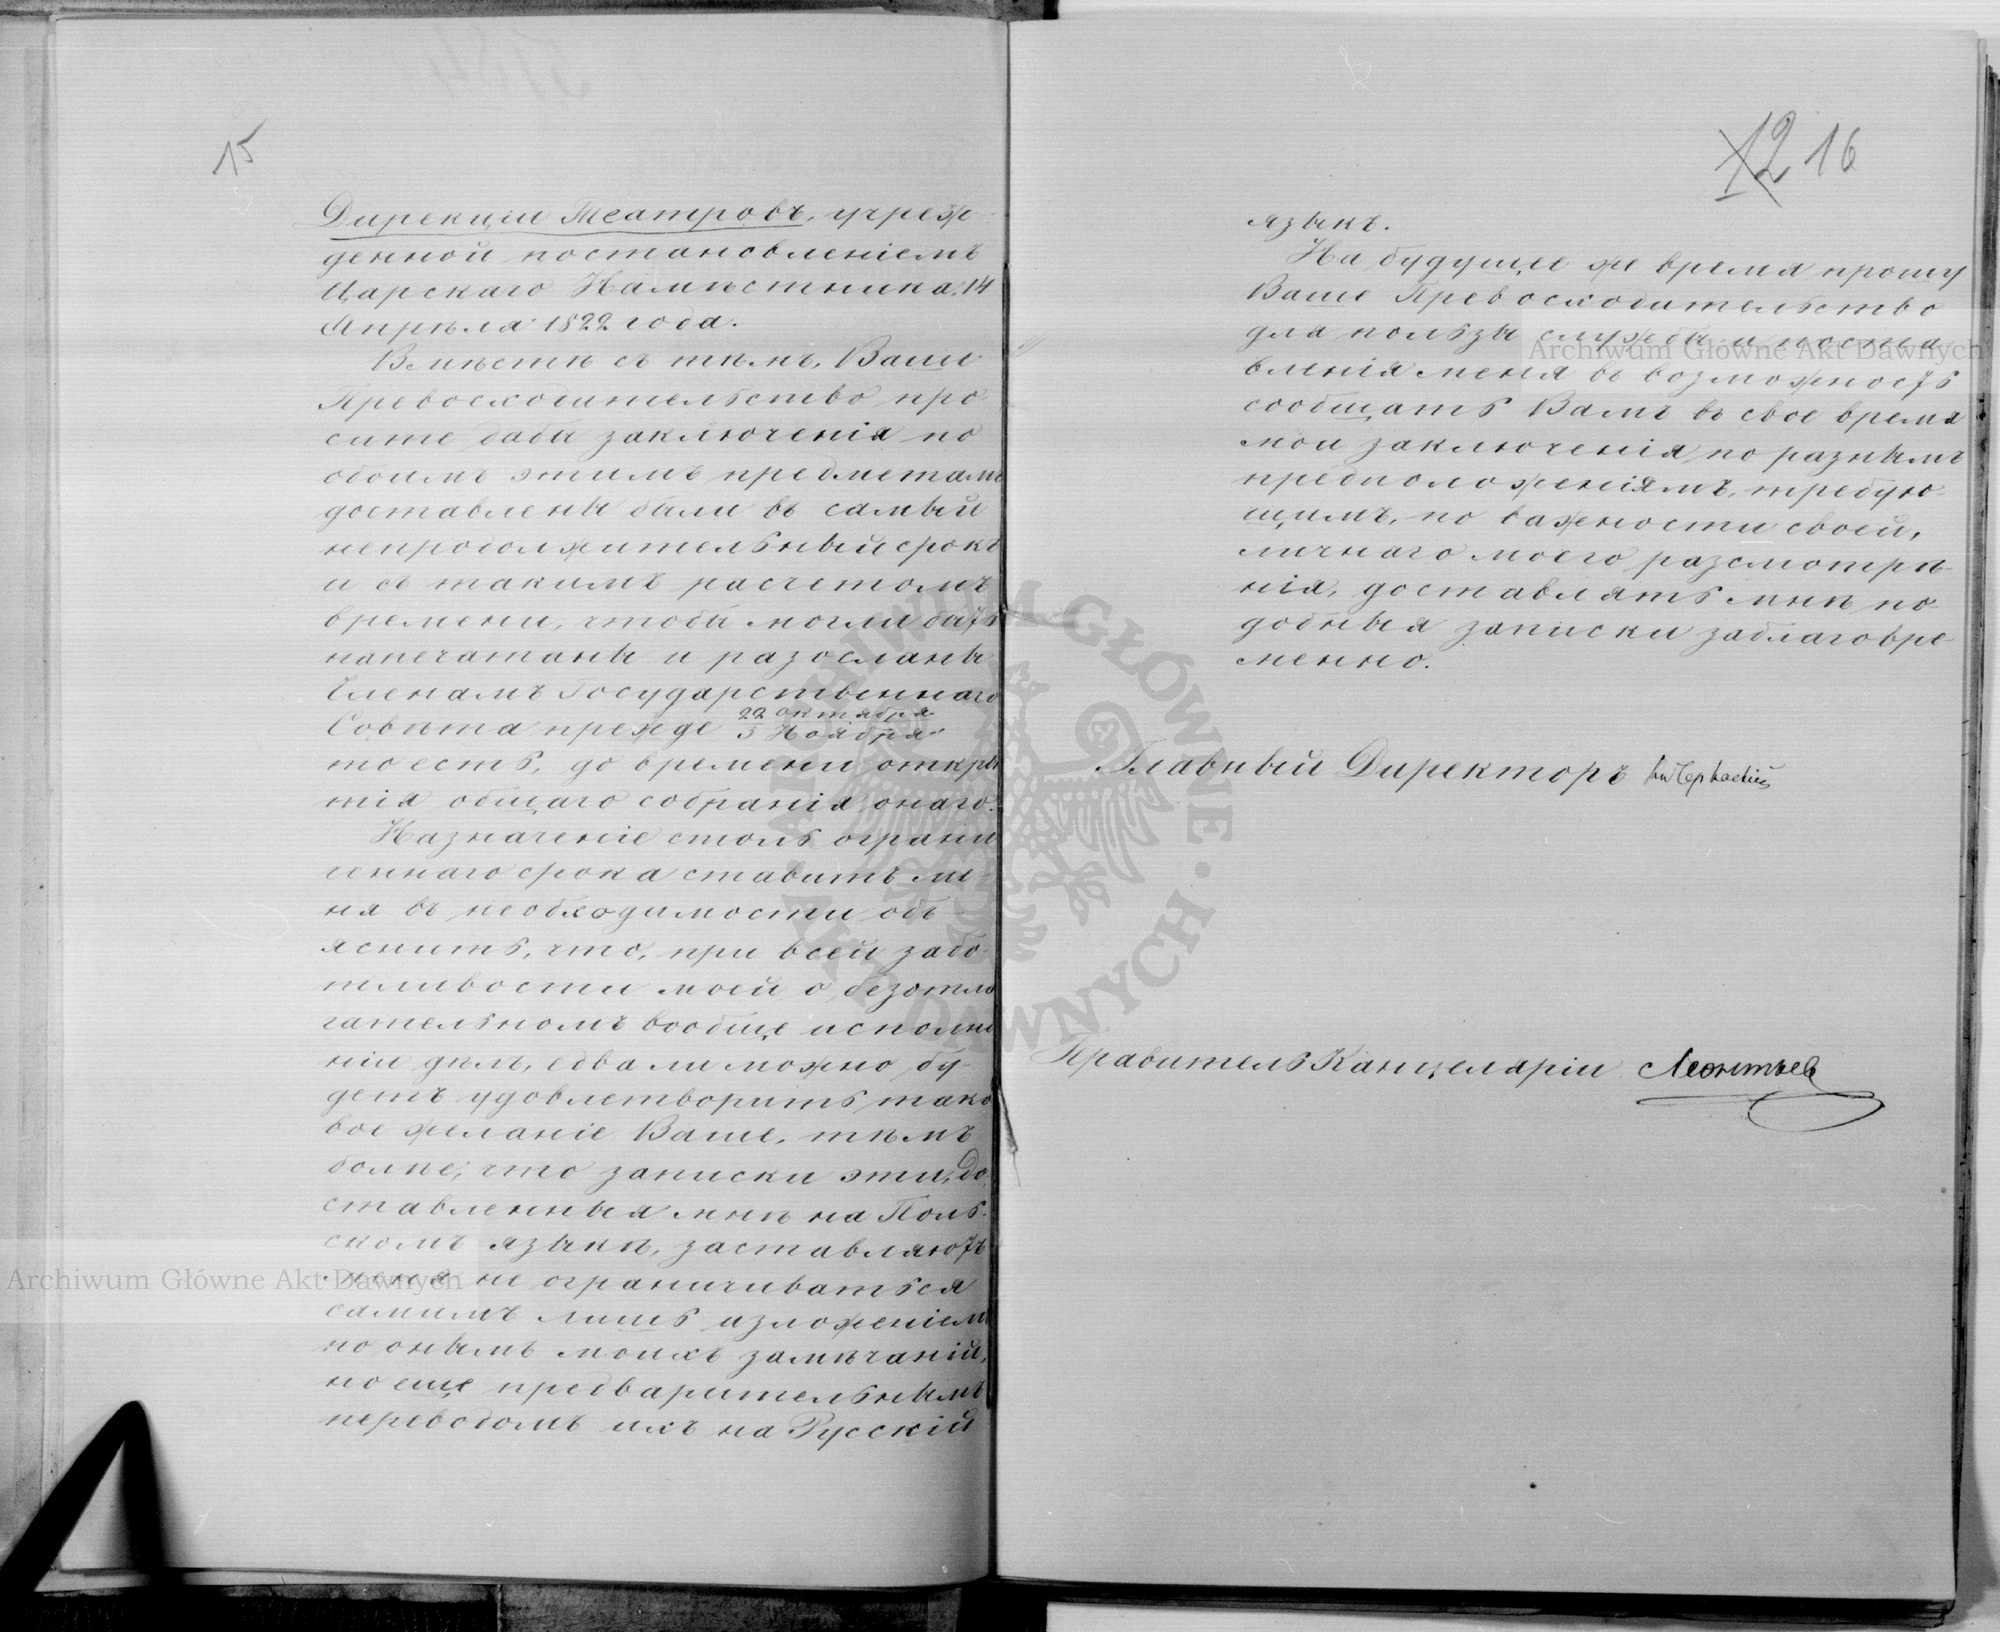 15
Дирекціи Театровъ, учреж-
денной постановленіемъ
Царскаго Намѣстника 14
Апрѣля 1822 года.
Вмѣстѣ съ тѣмъ, Ваше
Превосходительство про-
сите дабы заключенія по
обоимъ этимъ предметамъ
доставлены были въ самый
непродолжительный срокъ
и съ такимъ расчетомъ
времени, чтобы могли быть
напечатаны и разосланы
Членамъ Государственнаго
Совѣта прежде 22 октября
3 Ноября
то есть, до времени откры-
тія общаго собранія онаго.
Назначеніе столь ограни-
ченнаго срока ставитъ ме-
ня въ необходимости объ-
яснить, что, при всей забо-
тливости моей о безотла-
гательномъ вообще исполне-
ніи дѣлъ, едва ли можно бу-
детъ удовлетворить тако-
вое желаніе Ваше, тѣмъ
болѣе, что записки эти, до-
ставленныя мнѣ на Поль-
скомъ языкѣ, заставляютъ
меня не ограничиваться
самимъ лишь изложеніемъ
по онымъ моихъ замѣчаній,
но еще предварительнымъ
переводомъ ихъ на Русскій
12 16
языкъ.
На будущее же время прошу
Ваше Превосходительство
для пользы службы и поста-
вленія меня въ возможность
сообщать Вамъ въ свое время
мои заключенія по разнымъ
предположеніямъ, требую-
щимъ, по важности своей,
личнаго моего разсмотрѣ-
нія, доставлять мнѣ по-
добныя записки заблаговре-
менно.
Главный Директоръ Кн Черкаскій
Правитель Канцеляріи Леонтьев
Archiwum Główne Akt Dawnych
Archiwum Główne Akt Dawnych
ARCHIWUM GŁÓWNE AKT DAWNYCH